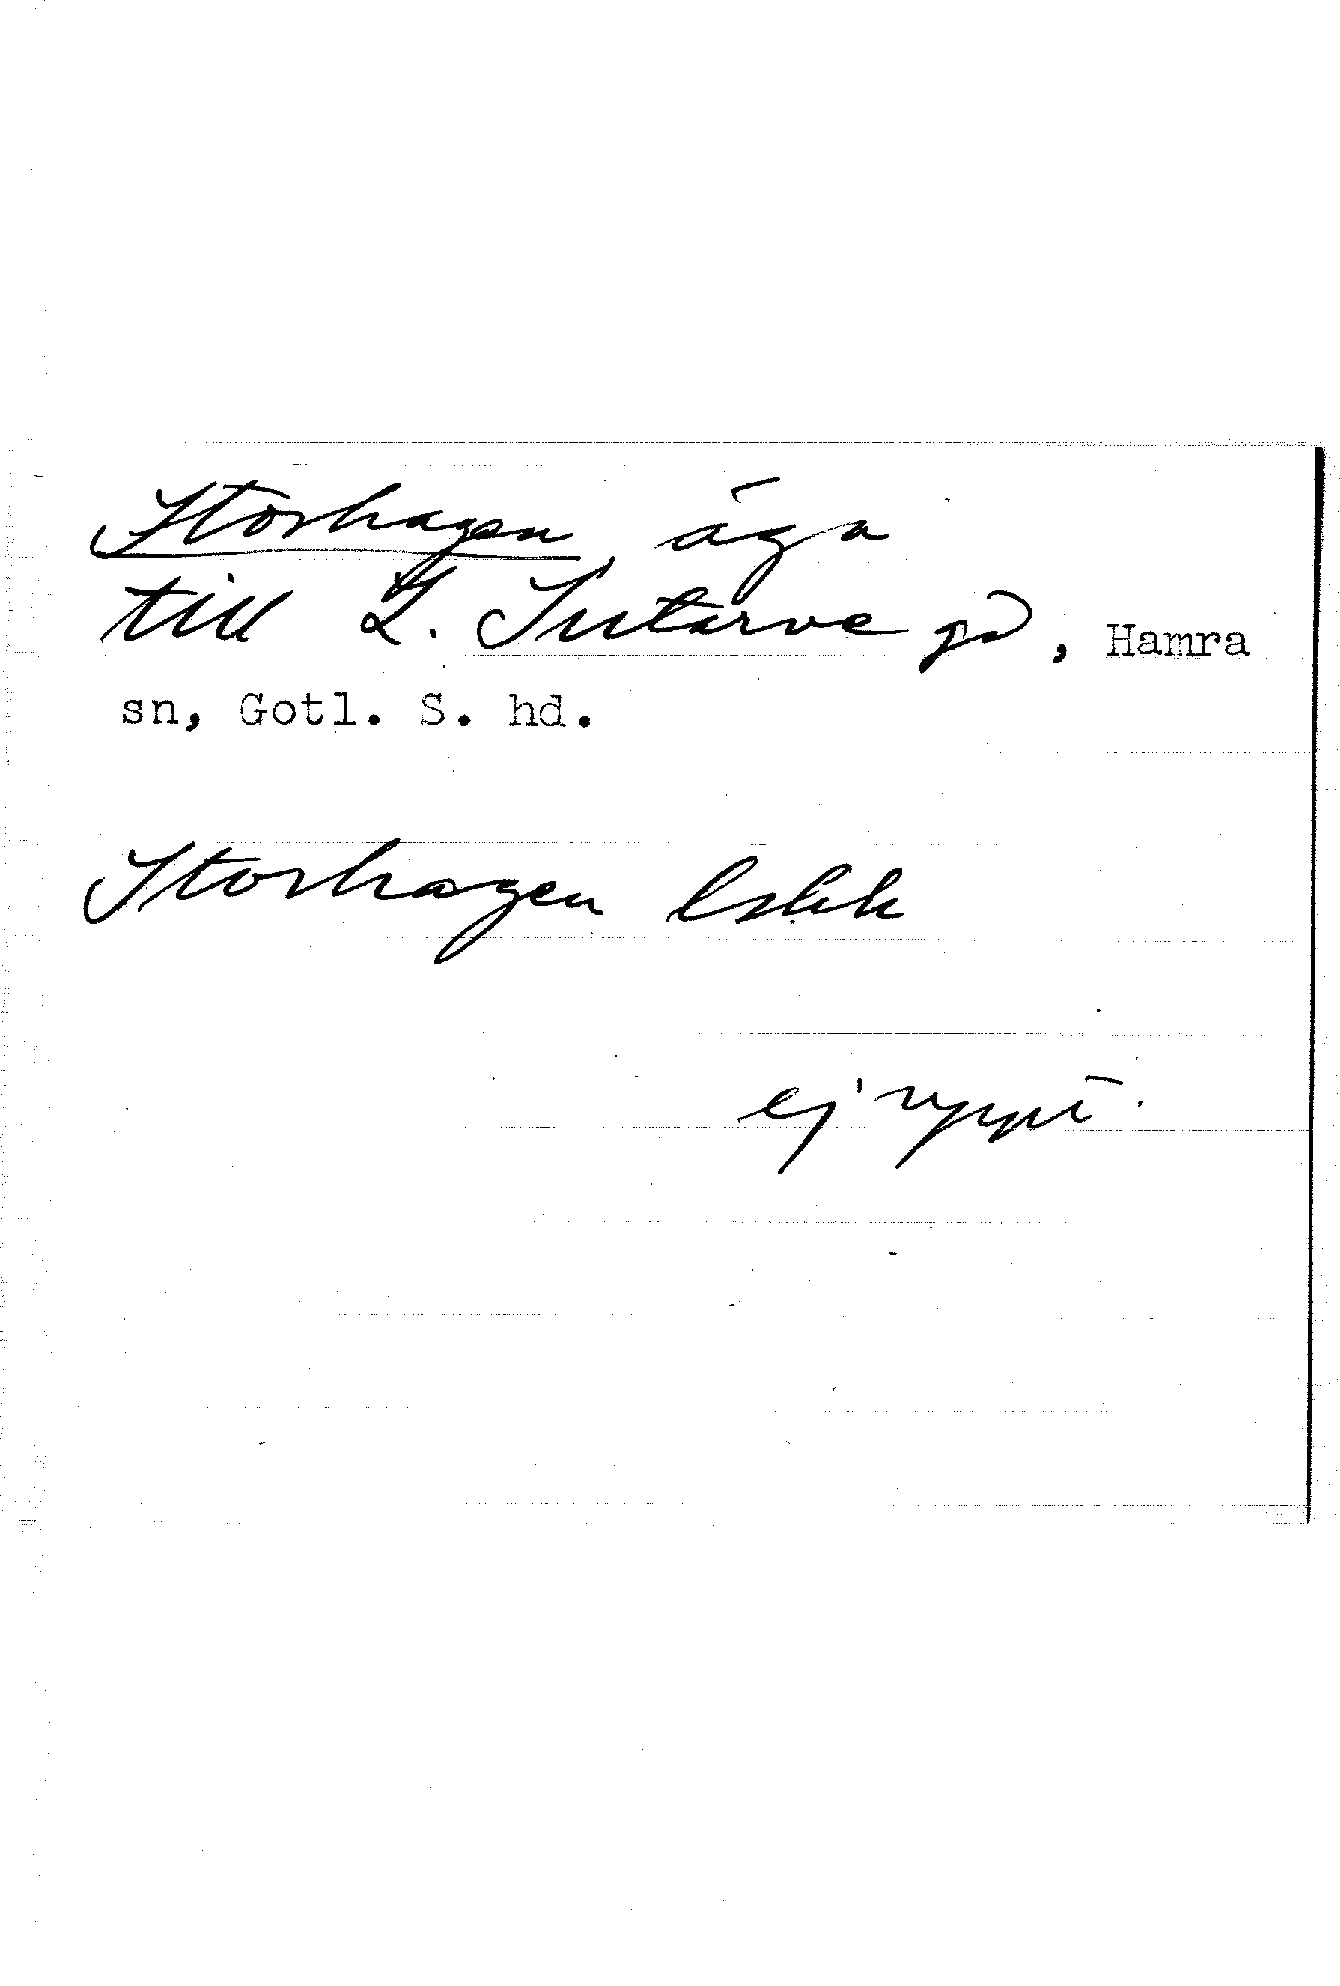 Storhagen, äga
till L. Sutarve gd, Hamra
sn, Gotl. S. hd.
Storhagen
ej uppt.